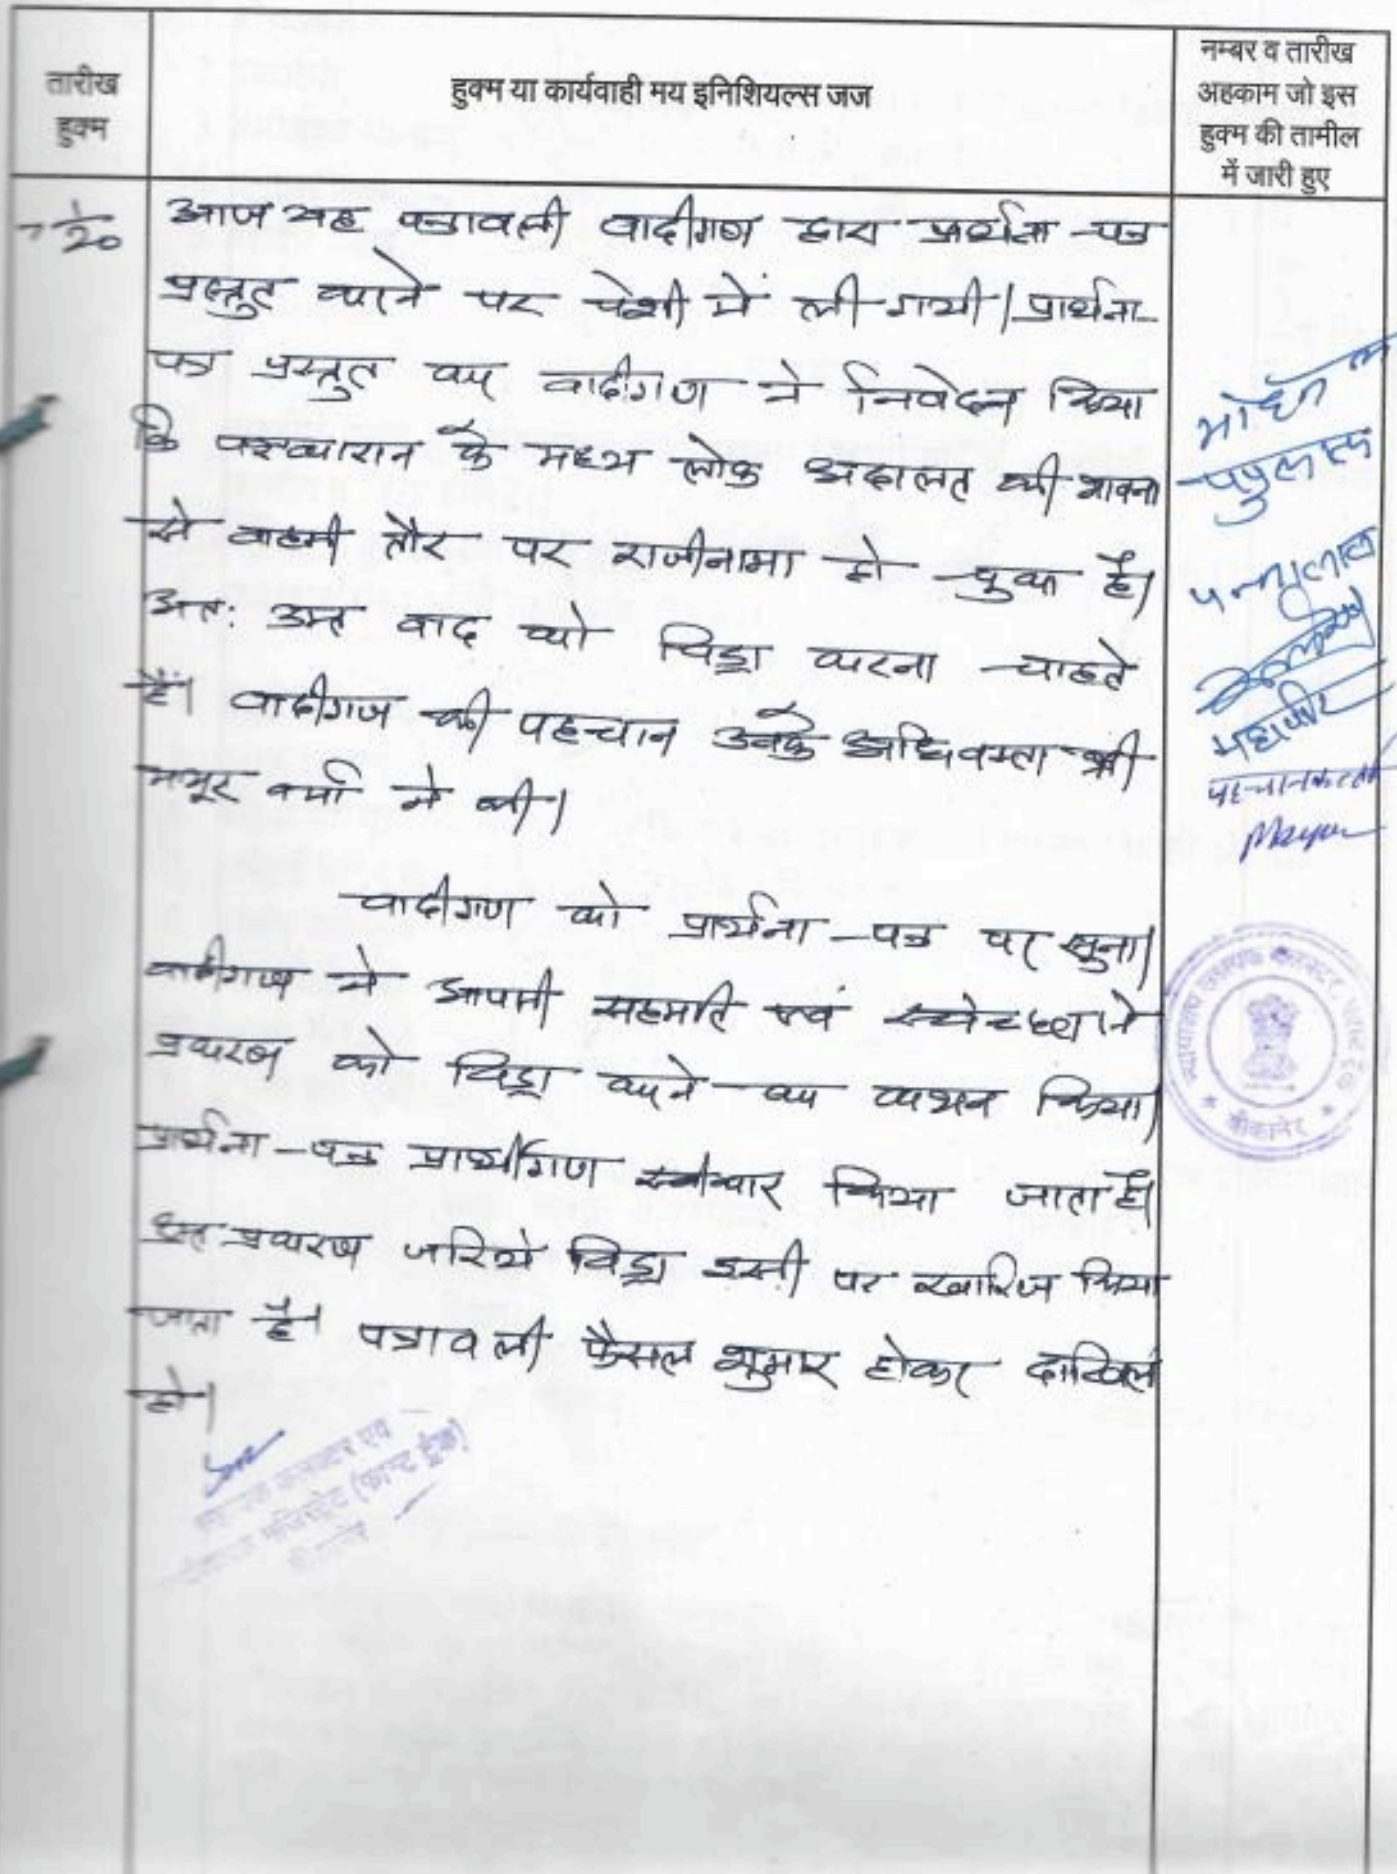 तारीख
हुक्म
हुक्म या कार्यवाही मय इनिशियल्स जज
नम्बर व तारीख
अहकाम जो इस
हुक्म की तामील
में जारी हुए
आज यह पत्रावली वादीगण द्वारा प्रार्थना-पत्र
प्रस्तुत करने पर पेशी में ली गयी। प्रार्थना-
पत्र प्रस्तुत कर वादीगण ने निवेदन किया
कि पक्षकारान के मध्य लोक अदालत की भावना
से बाहमी तौर पर राजीनामा हो चुका है।
अतः उक्त वाद को विड्रा करना चाहते
हैं। वादीगण की पहचान उनके अधिवक्ता श्री
मयूर वर्मा ने की।
वादीगण को प्रार्थना-पत्र पर सुना।
वादीगण ने आपसी सहमति एवं स्वेच्छा से
प्रकरण को विड्रा करने का कथन किया।
प्रार्थना-पत्र प्रार्थीगण स्वीकार किया जाता है।
प्रकरण जरिये विड्रा इसी पर खारिज किया
जाता है। पत्रावली फैसल शुमार होकर दाखिल
हो।
पन्नालाल
महावीर
पहचानकर्ता
Mayur
बीकानेर